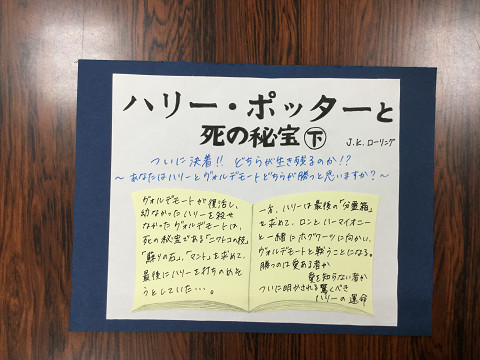 ハリー・ポッターと
死の秘宝 下
J.K.ローリング
ついに決着!! どちらが生き残るのか!?
～あなたはハリーとヴォルデモートどちらが勝つと思いますか?～
ヴォルデモートが復活し、
幼なかったハリーを殺せ
なかったヴォルデモートは、
死の秘宝である「ニワトコの杖」
「蘇りの石」、「マント」を求めて、
最後にハリーを打ちのめそ
うとしていた…。
一方、ハリーは最後の「分霊箱」
を求めて、ロンとハーマイオニー
と一緒にホグワーツに向かい、
ヴォルデモートと戦うことになる。
勝つのは愛ある者か
愛を知らない者か
ついに明かされる驚くべき
ハリーの運命